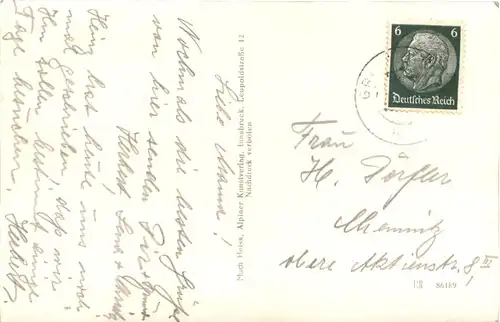 Liebe Mama!
Nochmals die besten Grüße
von hier senden Dir
Herbert, Lene +
Heinz hat heute uns noch
mal geschrieben, daß wir
ihn sollen bestimmt einige
Tage besuchen.
Much Heiss, Alpiner Kunstverlag, Innsbruck, Leopoldstraße 12
Nachdruck verboten
6 6
Deutsches Reich
Frau
H. Dörfler
Chemnitz
obere Aktienstr. 8 III
86189